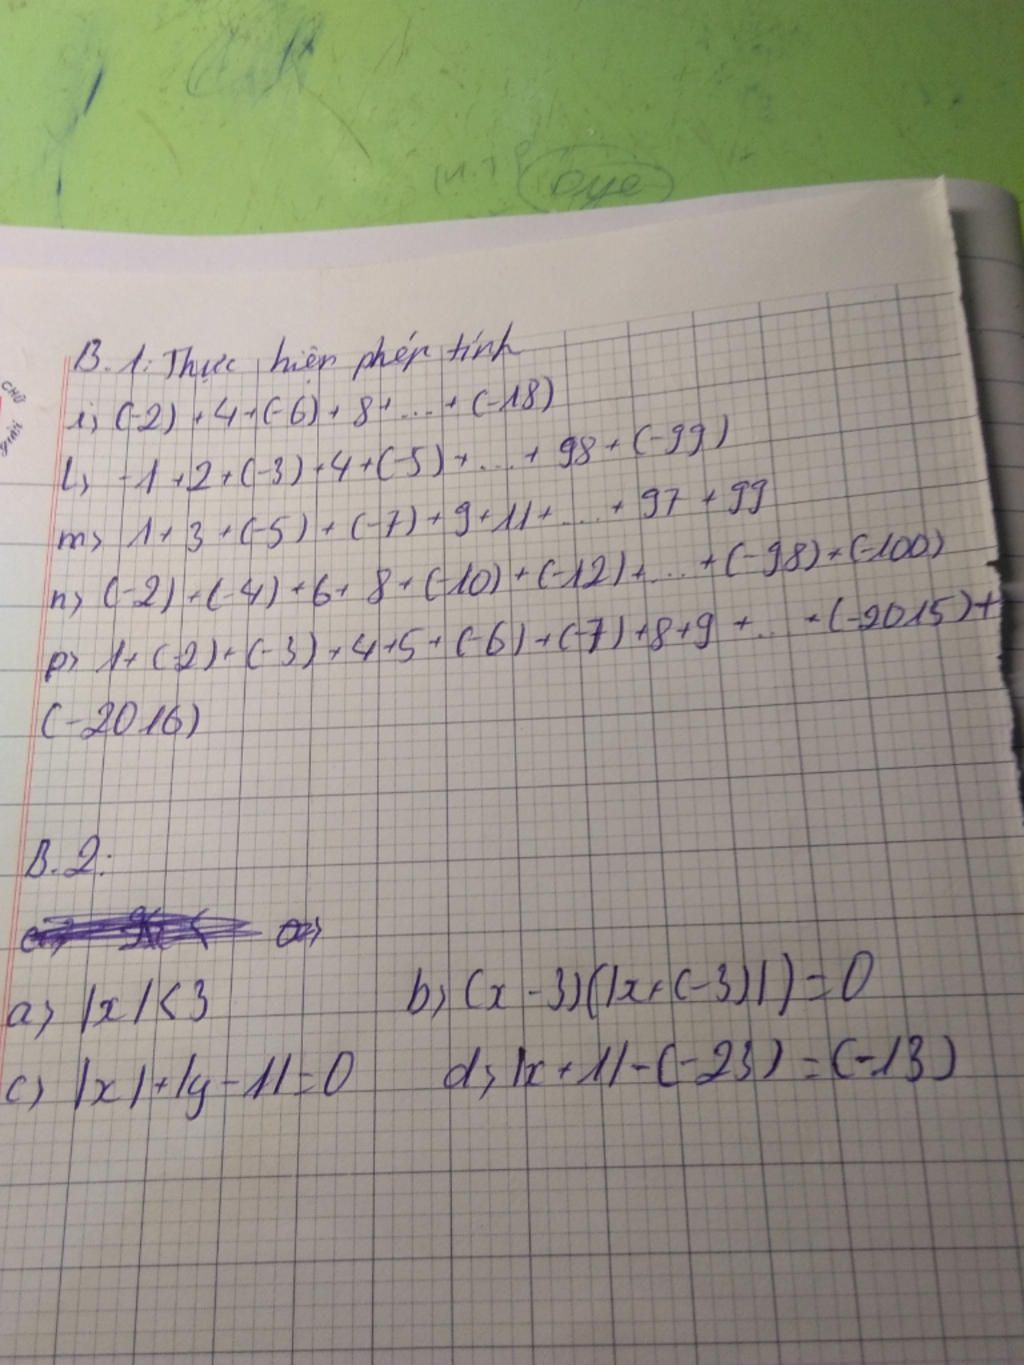 B.1: Thực hiện phép tính
i) (-2) + 4 + (-6) + 8 + ... + (-18)
l) -1 + 2 + (-3) + 4 + (-5) + ... + 98 + (-99)
m) 1 + 3 + (-5) + (-7) + 9 + 11 + ... + 97 + 99
n) (-2) + (-4) + 6 + 8 + (-10) + (-12) + ... + (-98) + (-100)
p) 1 + (-2) + (-3) + 4 + 5 + (-6) + (-7) + 8 + 9 + ... + (-2015) +
(-2016)
B.2:
a) |x| < 3 b) (x - 3)(|x + (-3)|) = 0
c) |x| + |y - 1| = 0 d) |x + 1| - (-23) = (-13)